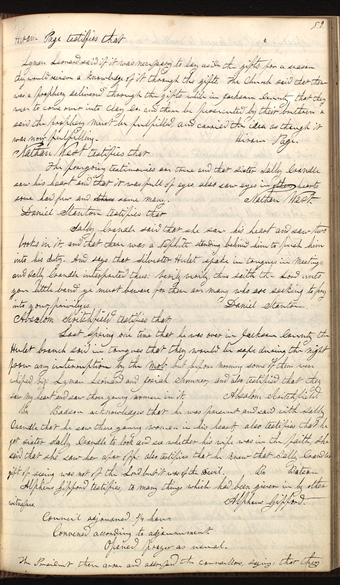 59
Hiram Page testifies that
Lyman Leonard said if it was necessary to lay aside the gifts for a season
they would receive a knowledge of it through the gifts. He Church said that there
was a prophecy delivered through the gifts while in Jackson County that they
was to come over into Clay Co and then be persecuted by their brethren &
said the prophecy must be fulfilled and carried the idea as though it
was now fulfilling. Hiram Page.
Nathan West testifies that
The foregoing testimonies are true and that sister Sally Crandle
saw his heart and that it was full of eyes also saw eyes in other hearts
some had few and some many. Nathan West.
Daniel Stanton testifies that
Sally Crandle said that she saw his heart and saw two
books in it, and that there was a Nephite standing behind him to push him
into his duty. And says that Sylvester Hulet spoke in tongues in meeting
and Sally Crandle interpreted thus: verily verily thus saith the Lord unto
you little band ye must beware for there are many who are seeking to pry
into your privileges. Daniel Stanton.
Absalom Scritchfield testifies that
Last spring one time that he was over in Jackson County, the
Hulet branch said in tongues that they would be safe during the night
from any interruption by the Mob but before morning some of them were
whiped, viz: Lyman Leonard and Josiah Sumner, and also testified that they
saw my heart and saw three young women in it. Absalom Scritchfield
Br Batson acknowledges that he was present and said with Sally
Crandle that he saw three young women in his heart, also testifies that he
got sister Sally Crandle to look and see whether his wife was in the faith, she
said that she saw her afar off. also testifies that he knew that Sally Crandle's
gift of seeing was not of the Lord but it was of the Devil. Br Batson
Alpheus Gifford testifies, to many things which had been given in by other
witnesses Alpheus Gifford.
Council adjourned hour
Convened according to adjournment
Opened prayer as usual.
The President then arose and addressed the councillors, saying, that they